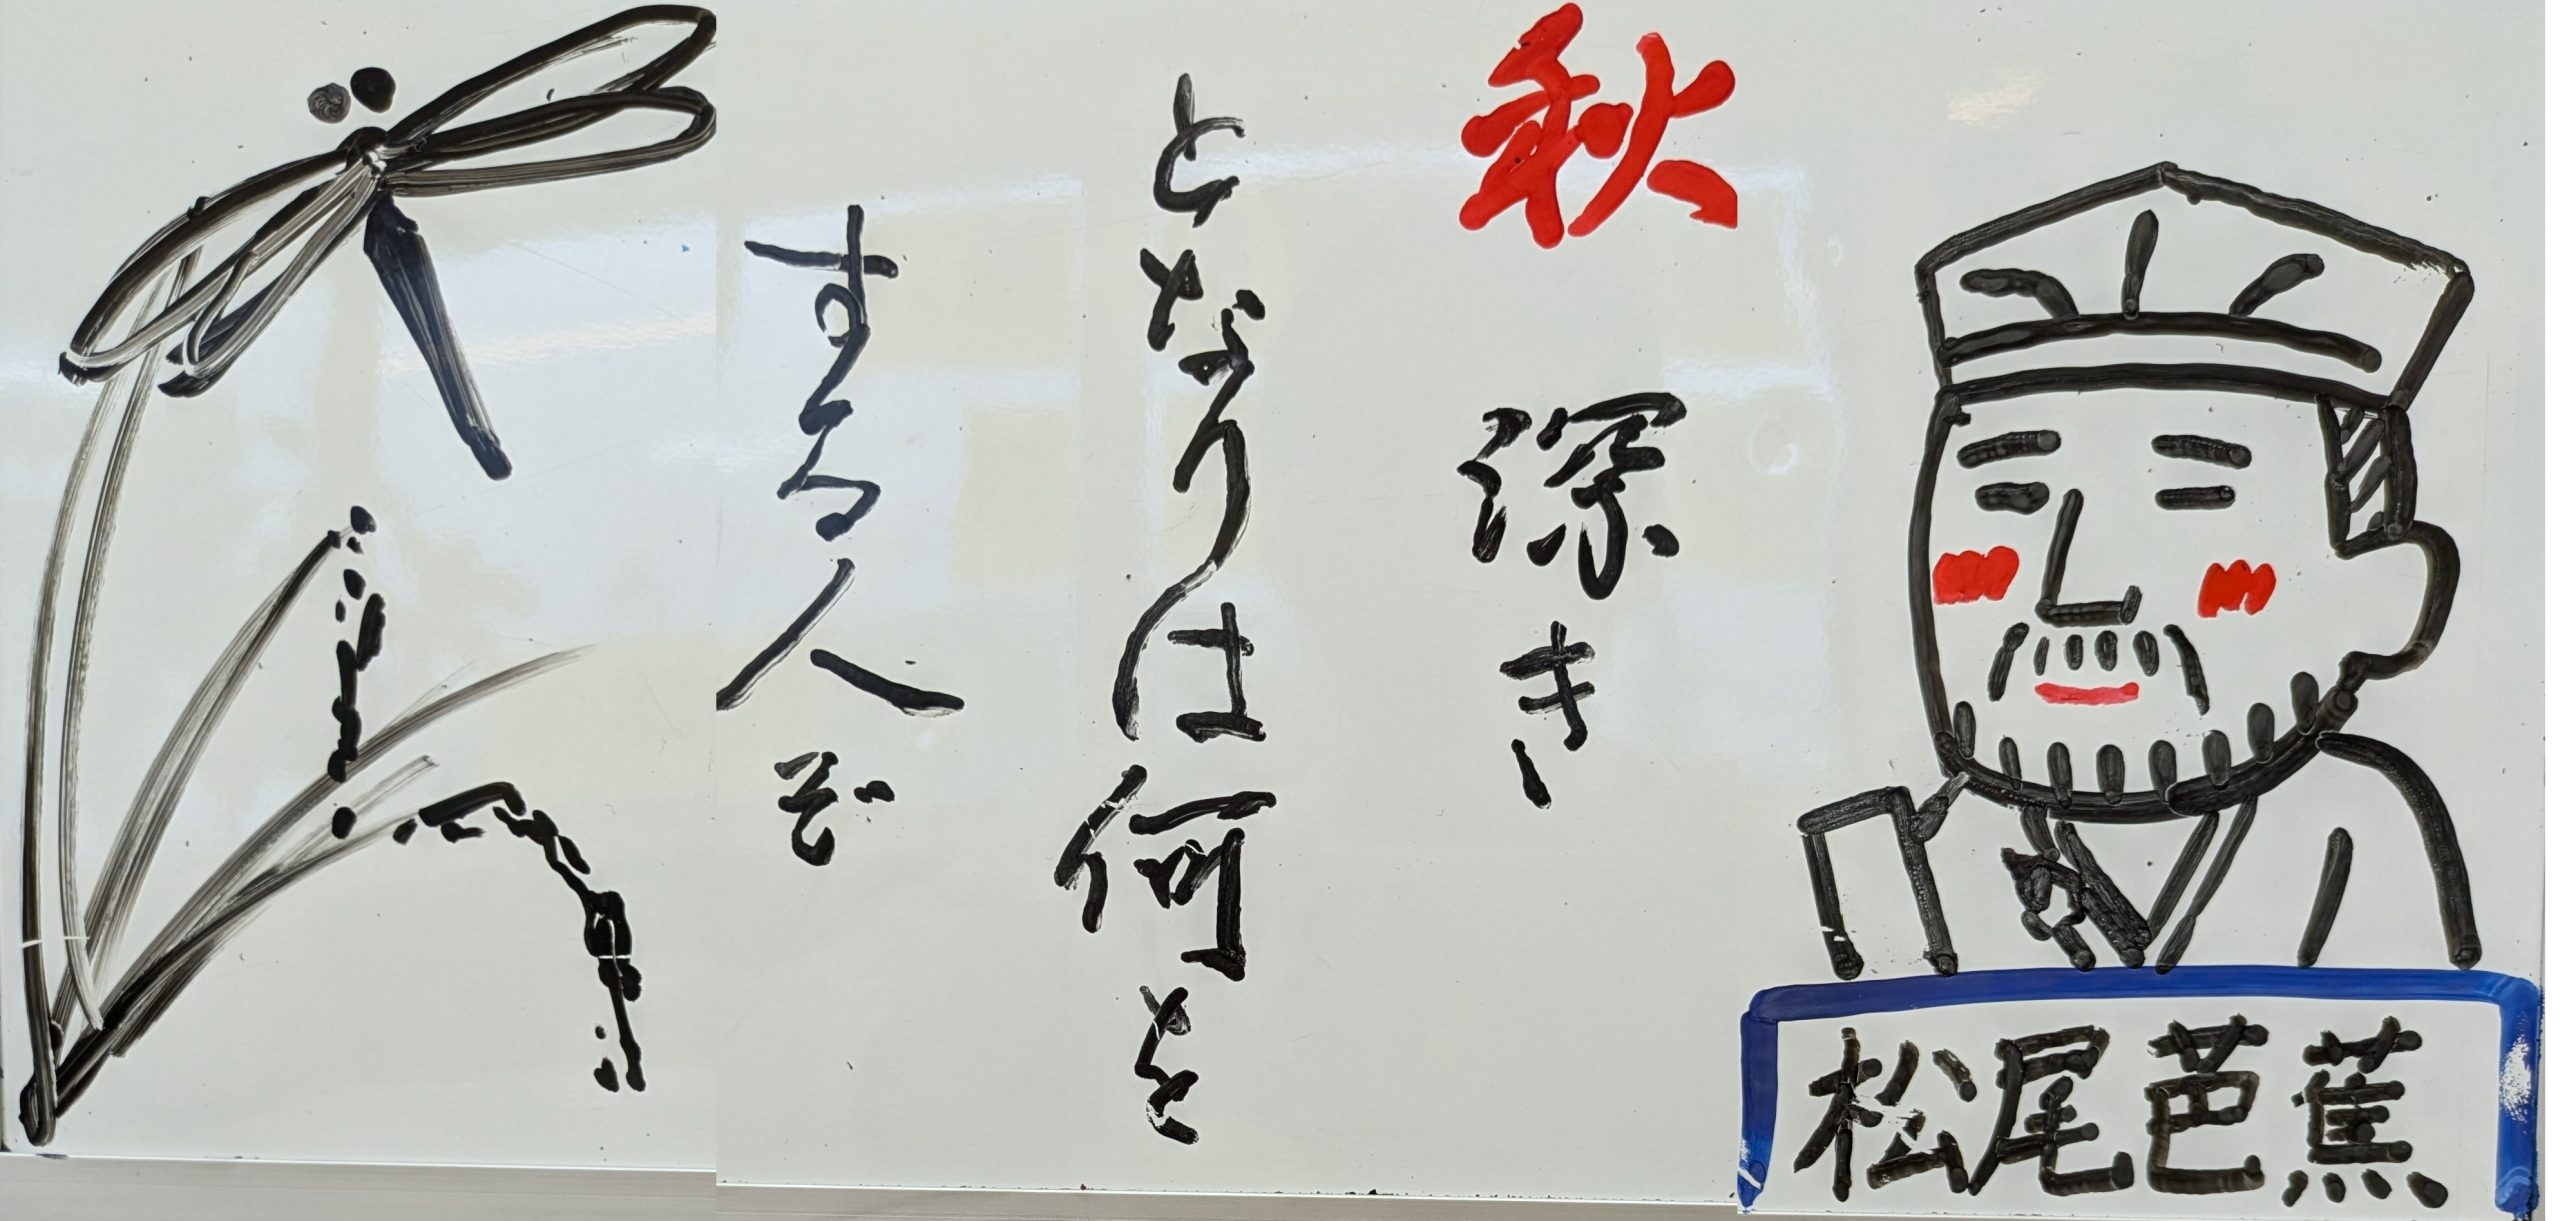 秋深き
となりは何を
する人ぞ
松尾芭蕉